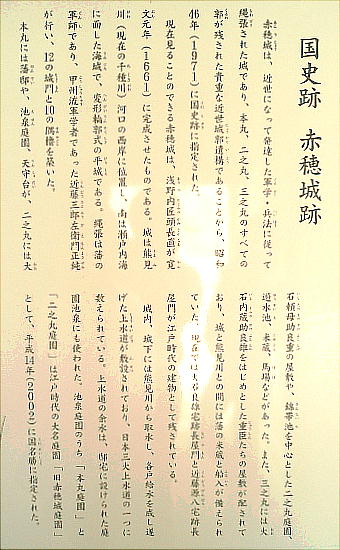 国史跡　赤穂城跡
赤穂城は、近世になって発達した軍学・兵法に従って
縄張された城であり、本丸、二之丸、三之丸のすべての
郭が残された貴重な近世城郭遺構であることから、昭和
46年(1971)に国史跡に指定された。
現在見ることのできる赤穂城は、浅野内匠頭長直が寛
文元年(1661)に完成させたものである。城は熊見
川(現在の千種川)河口の西岸に位置し、南は瀬戸内海
に面した海城で、変形輪郭式の平城である。縄張は藩の
軍師であり、甲州流軍学者であった近藤三郎左衛門正純
が行い、12の城門と10の隅櫓を築いた。
本丸には藩邸や、池泉庭園、天守台が、二之丸には大
石頼母助良重の屋敷や、錦帯池を中心とした二之丸庭園、
遊水池、米蔵、馬場などがあった。また、三之丸には大
石内蔵助良雄をはじめとした重臣たちの屋敷が配されて
おり、城と熊見川との間には藩の米蔵と船入が備えられ
ていた。現在では大石良雄宅跡長屋門と近藤源八宅跡長
屋門が江戸時代の建物として残されている。
城内、城下には熊見川から取水し、各戸給水を成し遂
げた上水道が敷設されており、日本三大上水道の一つに
数えられている。上水道の余水は、邸宅に設けられた庭
園池泉にも使われた。池泉庭園のうち「本丸庭園」と
「二之丸庭園」は江戸時代の大名庭園「旧赤穂城庭園」
として、平成14年(2002)に国名勝に指定された。